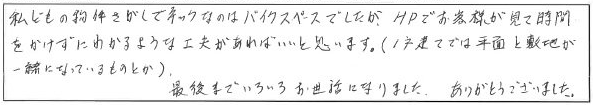 私どもの物件さがしでネックなのはバイクスペースでしたが、HPでお客様が見て時間
をかけずにわかるような工夫があればいいと思います。(1戸建てでは平面と敷地が
一緒になっているものとか)。
最後までいろいろお世話になりました。ありがとうございました。